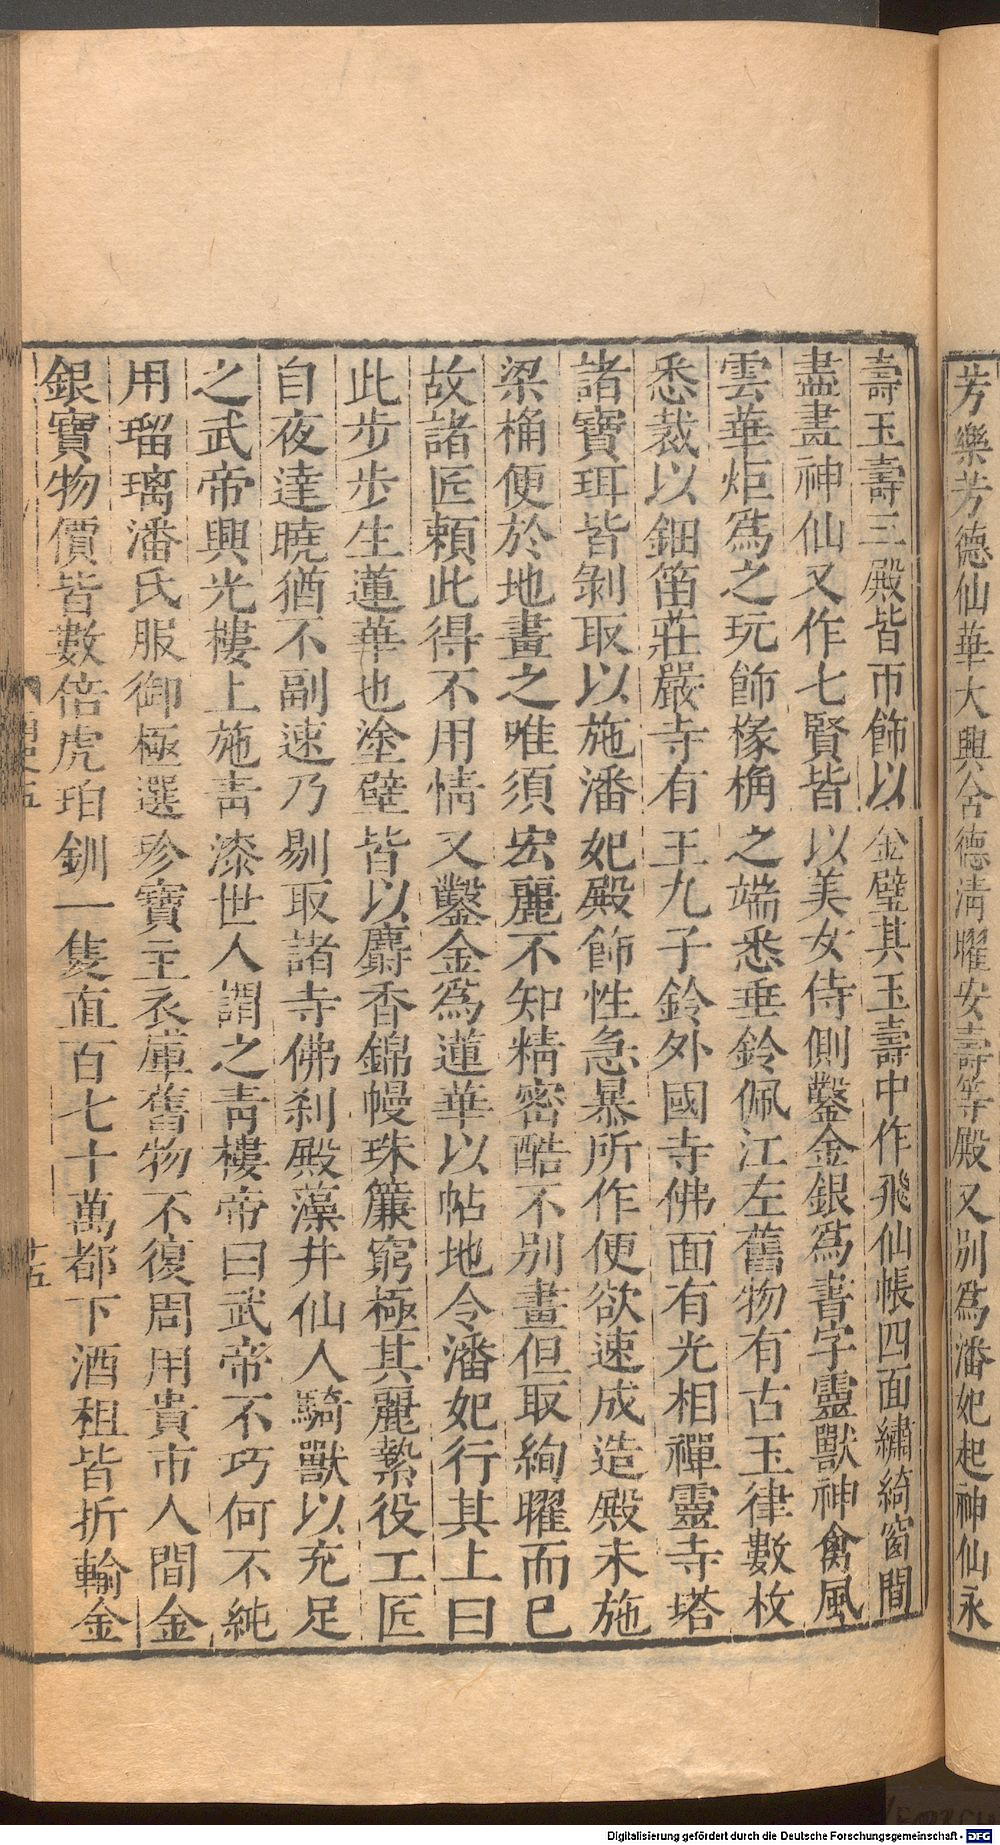 芳樂芳德仙華大興含德淸曜安壽等殿又別爲潘妃起神仙永
壽玉壽三殿皆帀飾以金璧其玉壽中作飛仙帳四面繡綺窗間
盡畫神仙又作七賢皆以美女侍側鑿金銀爲書字靈獸神禽風
雲華炬爲之玩飾椽桷之端悉垂鈴佩江左舊物有古玉律數枚
悉裁以鈿笛莊嚴寺有玉九子鈴外國寺佛面有光相禪靈寺塔
諸寶珥皆剝取以施潘妃殿飾性急暴所作便欲速成造殿未施
梁桷便於地畫之唯須宏麗不知精密酷不別畫但取絢曜而已
故諸匠賴此得不用情又鑿金爲蓮華以帖地令潘妃行其上曰
此步步生蓮華也塗壁皆以麝香錦幔珠簾窮極其麗縶役工匠
自夜達曉猶不副速乃剔取諸寺佛刹殿藻井仙人騎獸以充足
之武帝興光樓上施靑漆世人謂之靑樓帝曰武帝不巧何不純
用瑠璃潘氏服御極選珍寶主衣庫舊物不復周用貴市人間金
銀寶物價皆數倍虎珀釧一隻直百七十萬都下酒租皆折輸金
十五
Digitalisierung gefördert durch die Deutsche Forschungsgemeinschaft - DFG